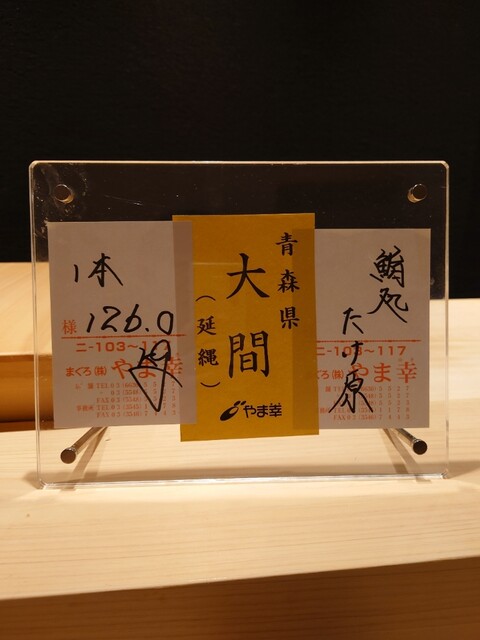 1本
様 126.0
ニ-103~117
まぐろ(株)やま幸
青森県
大間
(延縄)
やま幸
鮨処
たけ原
ニ-103~117
やま幸